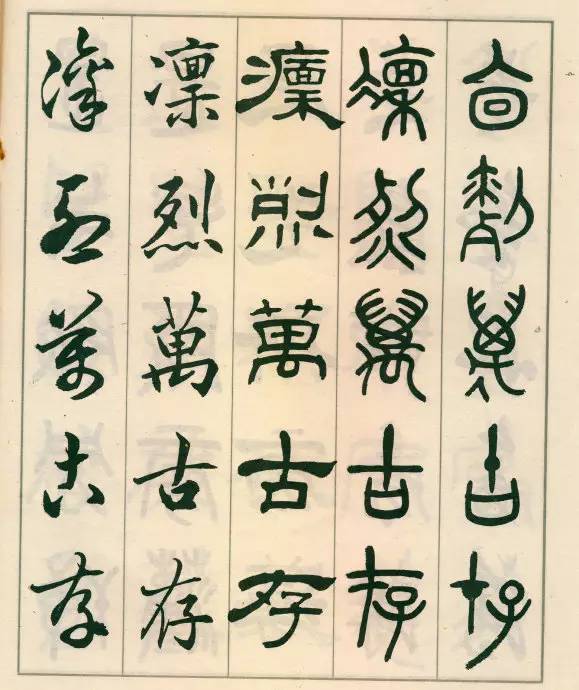 凜烈萬古存
凜烈萬古存
凜烈萬古存
凜烈萬古存
凜烈萬古存